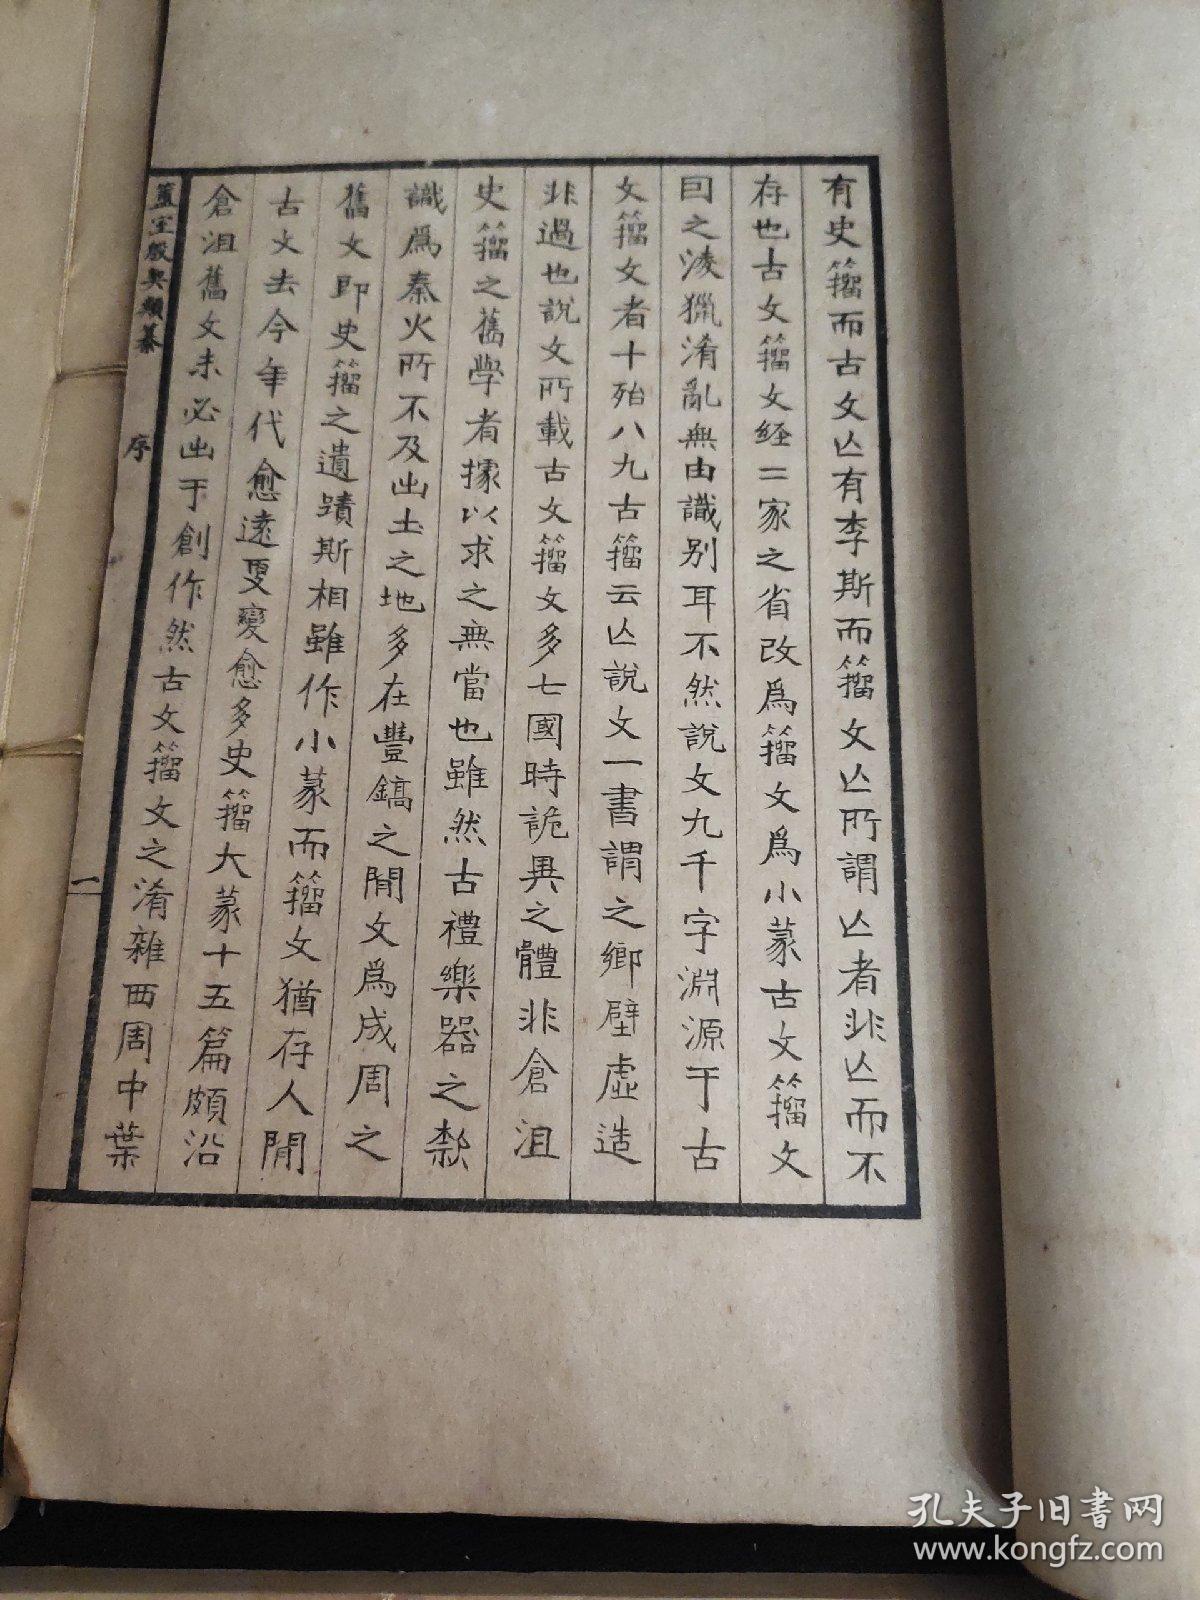 有史籀而古文亾有李斯而籀文亾所謂亾者非亾而不
存也古文籀文經二家之省改爲籀文爲小篆古文籀文
囙之淩獵淆亂無由識别耳不然說文九千字淵源于古
文籀文者十殆八九古籀云亾說文一書謂之鄉壁虛造
非過也說文所載古文籀文多七國時詭異之體非倉沮
史籀之舊學者據以求之無當也雖然古禮樂器之款
識爲秦火所不及出土之地多在豐鎬之閒文爲成周之
舊文即史籀之遺蹟斯相雖作小篆而籀文猶存人閒
古文去今年代愈遠更變愈多史籀大篆十五篇頗沿
倉沮舊文未必出于創作然古文籀文之淆雜西周中葉
簠室殷契類纂 序 一
孔夫子旧书网
www.kongfz.com